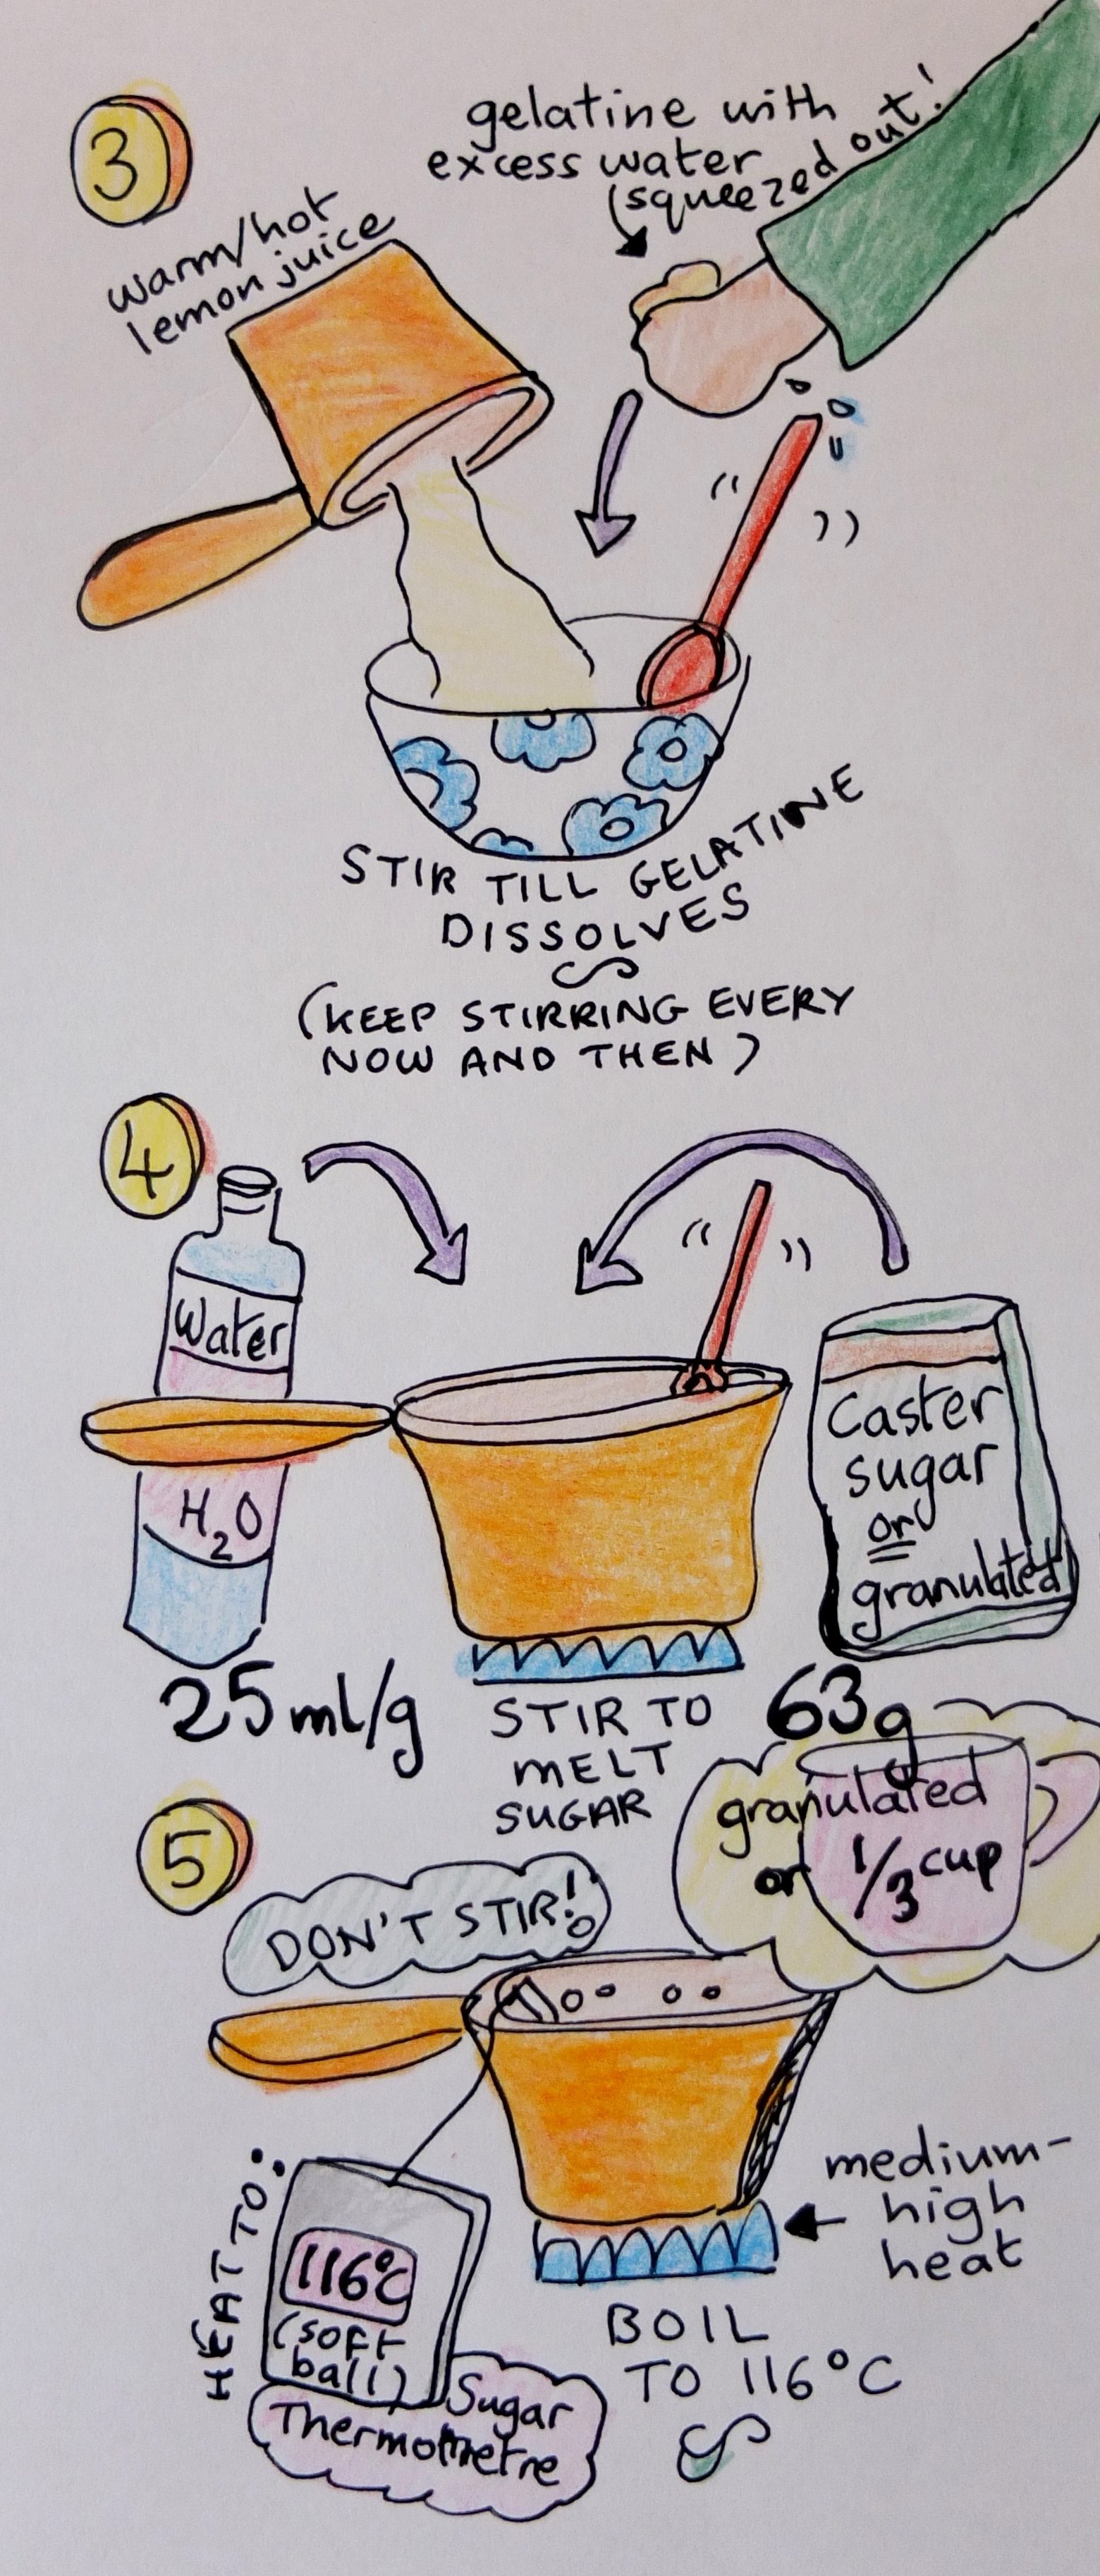 3
gelatine with
excess water
(squeezed out!
warm/hot
lemon juice
STIR TILL GELATINE
DISSOLVES
(KEEP STIRRING EVERY
NOW AND THEN)
4
Water
H2O
25ml/g
Caster
sugar
or
granulated
STIR TO
MELT
SUGAR
63g
granulated
or 1/3 cup
5
DON'T STIR!
HEAT TO:
116°C
(soft
ball)
Sugar
Thermometre
medium-
high
heat
BOIL
TO 116°C